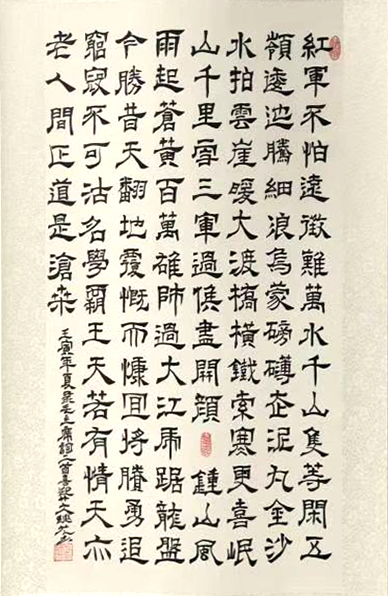 紅軍不怕遠徵難萬水千山隻等閑五
嶺逶迤騰細浪烏蒙磅礴走泥丸金沙
水拍雲崖暖大渡橋橫鐵索寒更喜岷
山千里雪三軍過後盡開顏 鍾山風
雨起蒼黃百萬雄師過大江虎踞龍盤
今勝昔天翻地覆慨而慷宜將賸勇追
窮寇不可沽名學霸王天若有情天亦
老人間正道是滄桑
壬寅年夏录毛主席詩二首